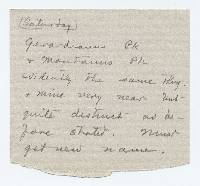 (Saturday)
Gerardianus Pk
& Montanus Pk
evidently the same thing.
& mine very near but
quite distinct as be-
fore stated. Must
get new name.